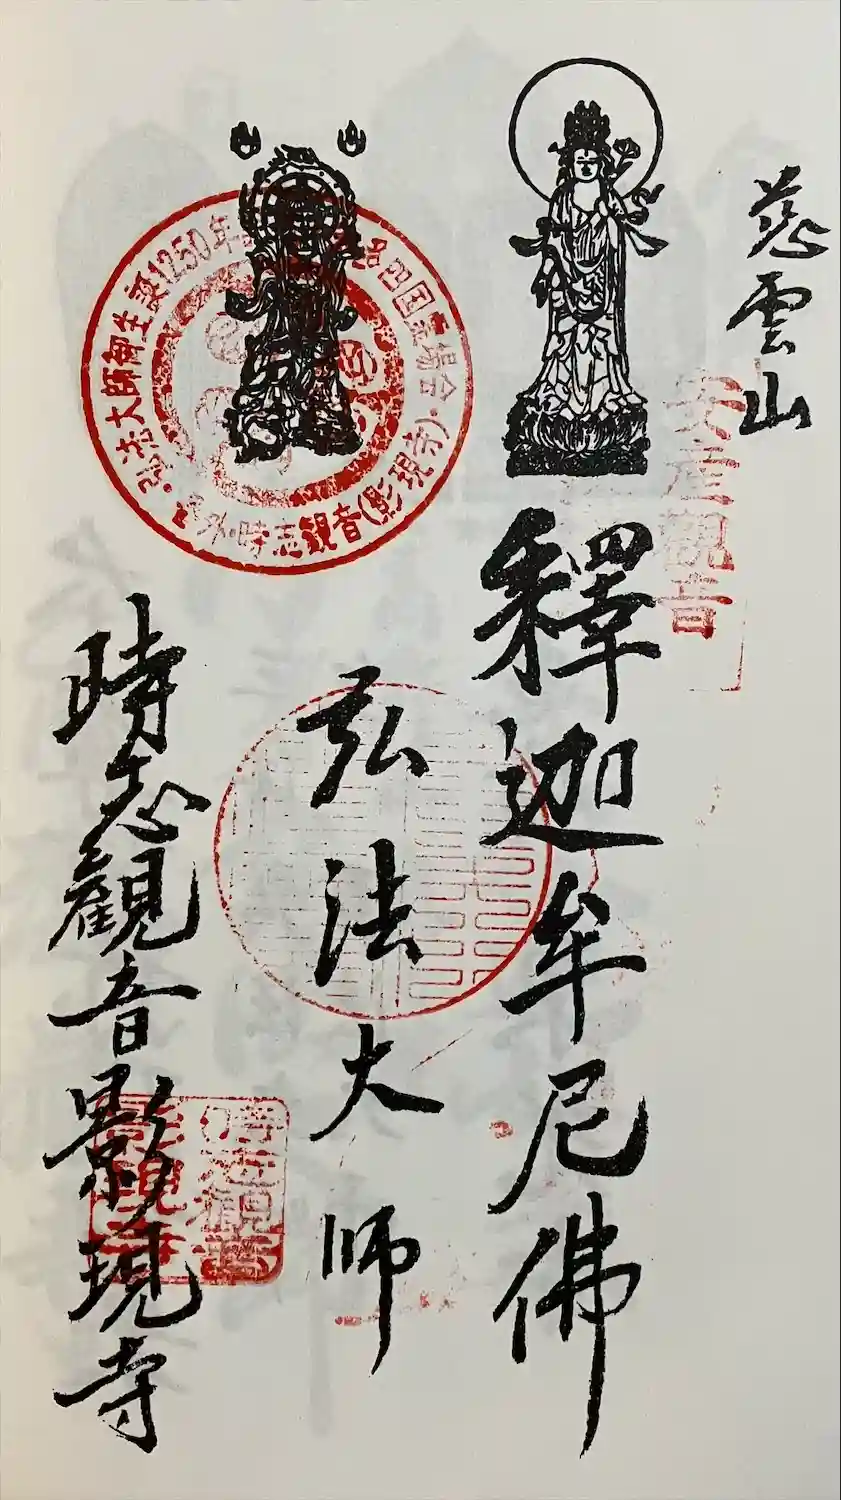 慈雲山
安産観音
釋迦牟尼佛
弘法大師
弘法大師御生誕1250年
四国霊場会・
外・時志観音(影現寺)・
時志觀音影現寺
時志観音
影現寺